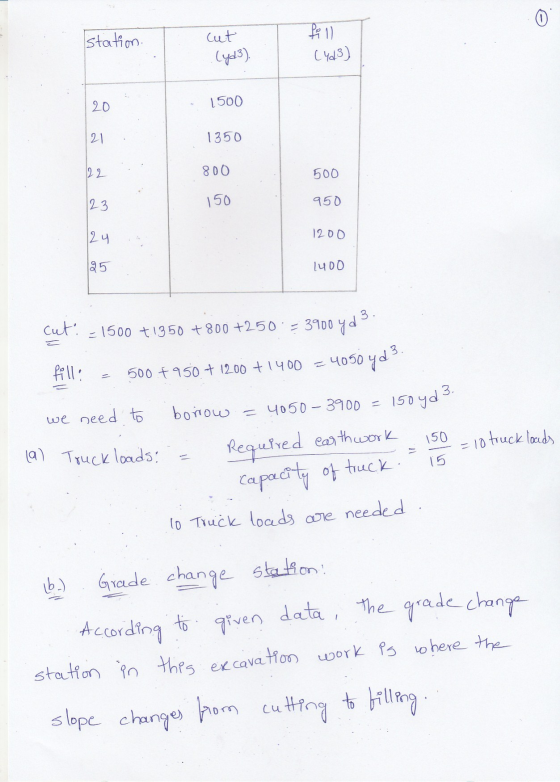 ①
Station. cut fill
(yd³). (yd³)
20 1500
21 1350
22 800 500
23 150 950
24 1200
25 1400
cut: = 1500 +1350 +800 +250 = 3900 yd³.
fill: = 500 + 950 + 1200 + 1400 = 4050 yd³.
we need to borrow = 4050 - 3900 = 150 yd³.
(a) Truck loads: = Required earthwork / capacity of truck. = 150 / 15 = 10 truck loads
10 Truck loads are needed.
(b.) Grade change station:
According to given data, the grade change
station in this excavation work is where the
slope changes from cutting to filling.